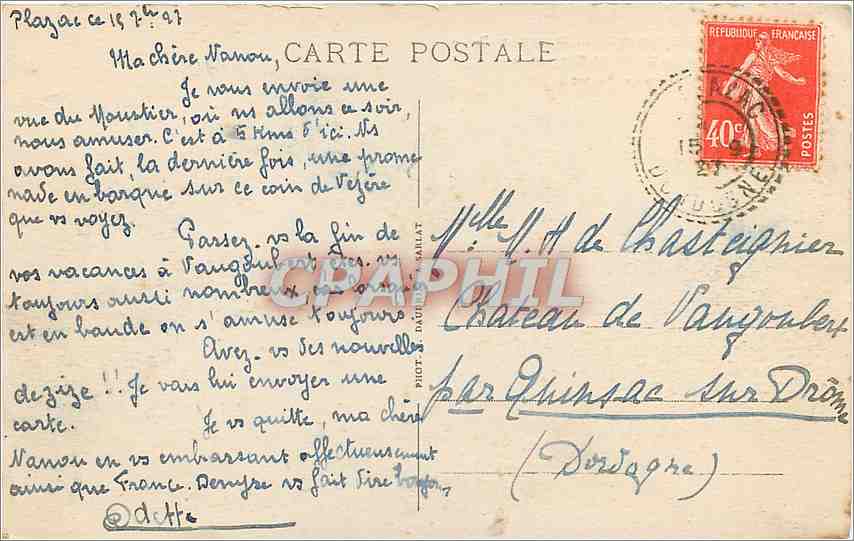 Plazac ce 15 7bre 27
Ma chère Nanou,
CARTE POSTALE
Je vous envoie une
vue du Moustier, où ns allons ce soir,
nous amuser. C'est à 5 Kms d'ici. Ns
avons fait, la dernière fois, une prome
nade en barque sur ce coin de Vézère
que vs voyez.
Passez-vs la fin de
vos vacances à Vaugoubert, êtes-vs
toujours aussi nombreux, car lorsqu'on
est en bande on s'amuse toujours
Avez-vs des nouvelles
de zize !! Je vais lui envoyer une
carte.
Je vs quitte, ma chère
Nanou en vs embrassant affectueusement
ainsi que France. Denyse vs fait dire bonjour,
Odette
PHOT. DAUDRIX A SARLAT
REPUBLIQUE FRANÇAISE
40c
POSTES
PLAZAC
15 9
27
DORDOGNE
Melle M. H de Chasteignier
Château de Vaugoubert
par Quinsac sur Drôme
(Dordogne)
CPAPHIL